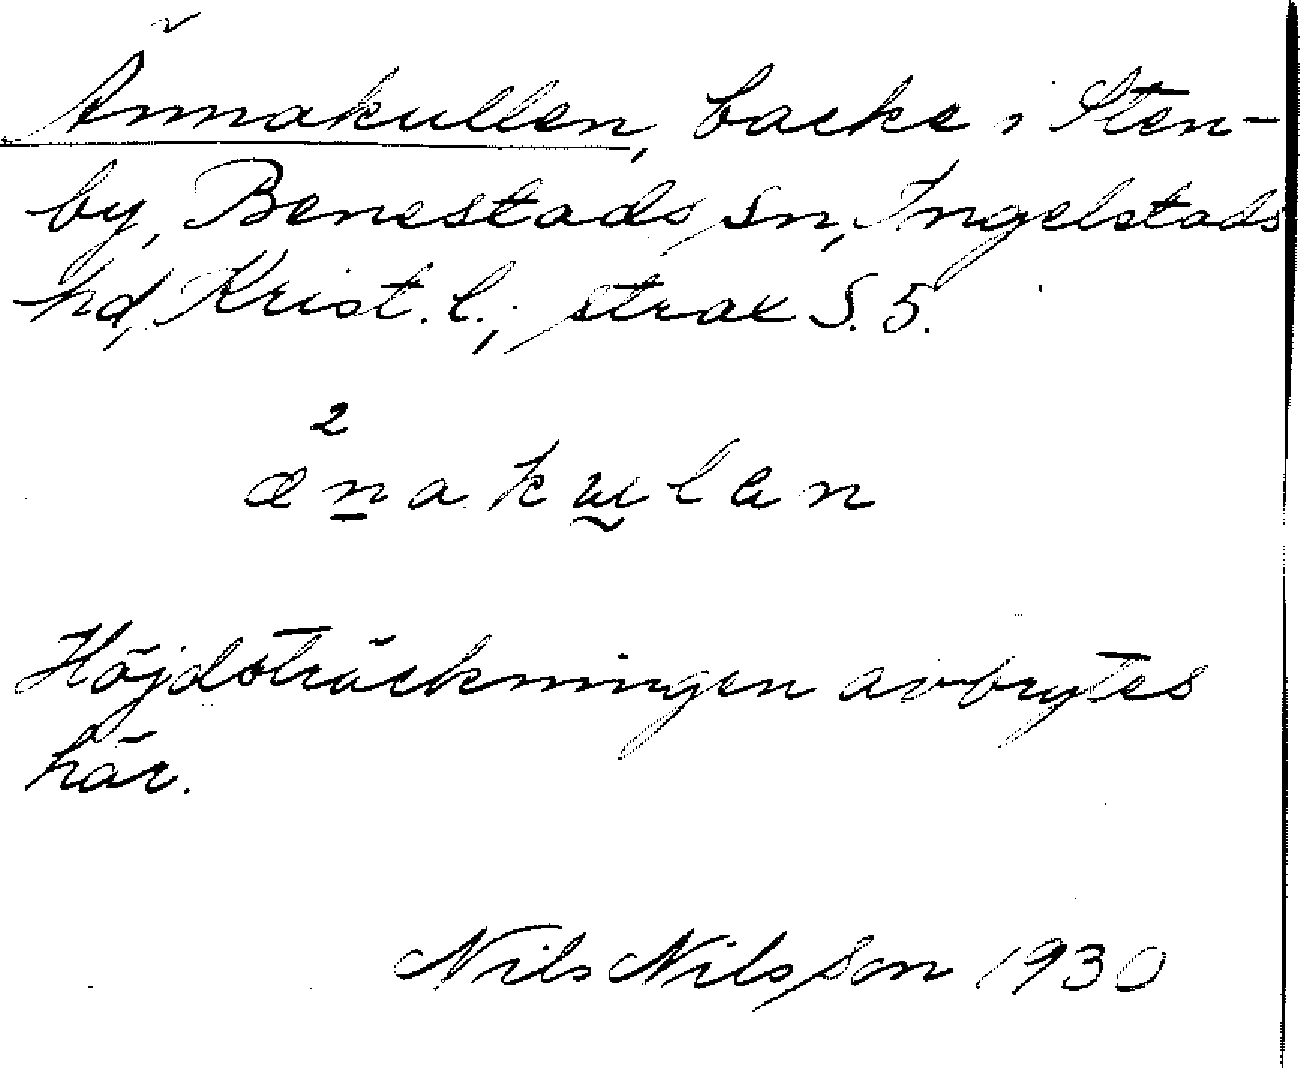 Ännakullen, backe i Sten-
by, Benestads sn, Ingelstads
hd, Krist. l.; strax S. 5.
2
ænakulan
Höjdsträckningen avbrytes
här.
Nils Nilsson 1930